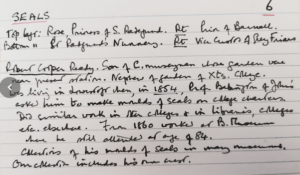 6
SEALS
Top left: Rose, Prioress of S. Radegund. Rt. Prior of Barnwell.
Bottom ": St Radegund's Nunnery. Rt. Vice Custos of Grey Friars
Robert Cooper Ready. Son of C. nurseryman whose garden was
near present station. Nephew of gardener of Xts. College.
living in down, in 1854. Prof. Babington of Johns
asked him to make moulds of seals on college charters.
Did similar work in other colleges & in libraries, colleges
etc. elsewhere. From 1860 worked at B. Museum
where he still attended at age of 84.
Collections of his moulds of seals in many museums.
Our collection includes his own crest.